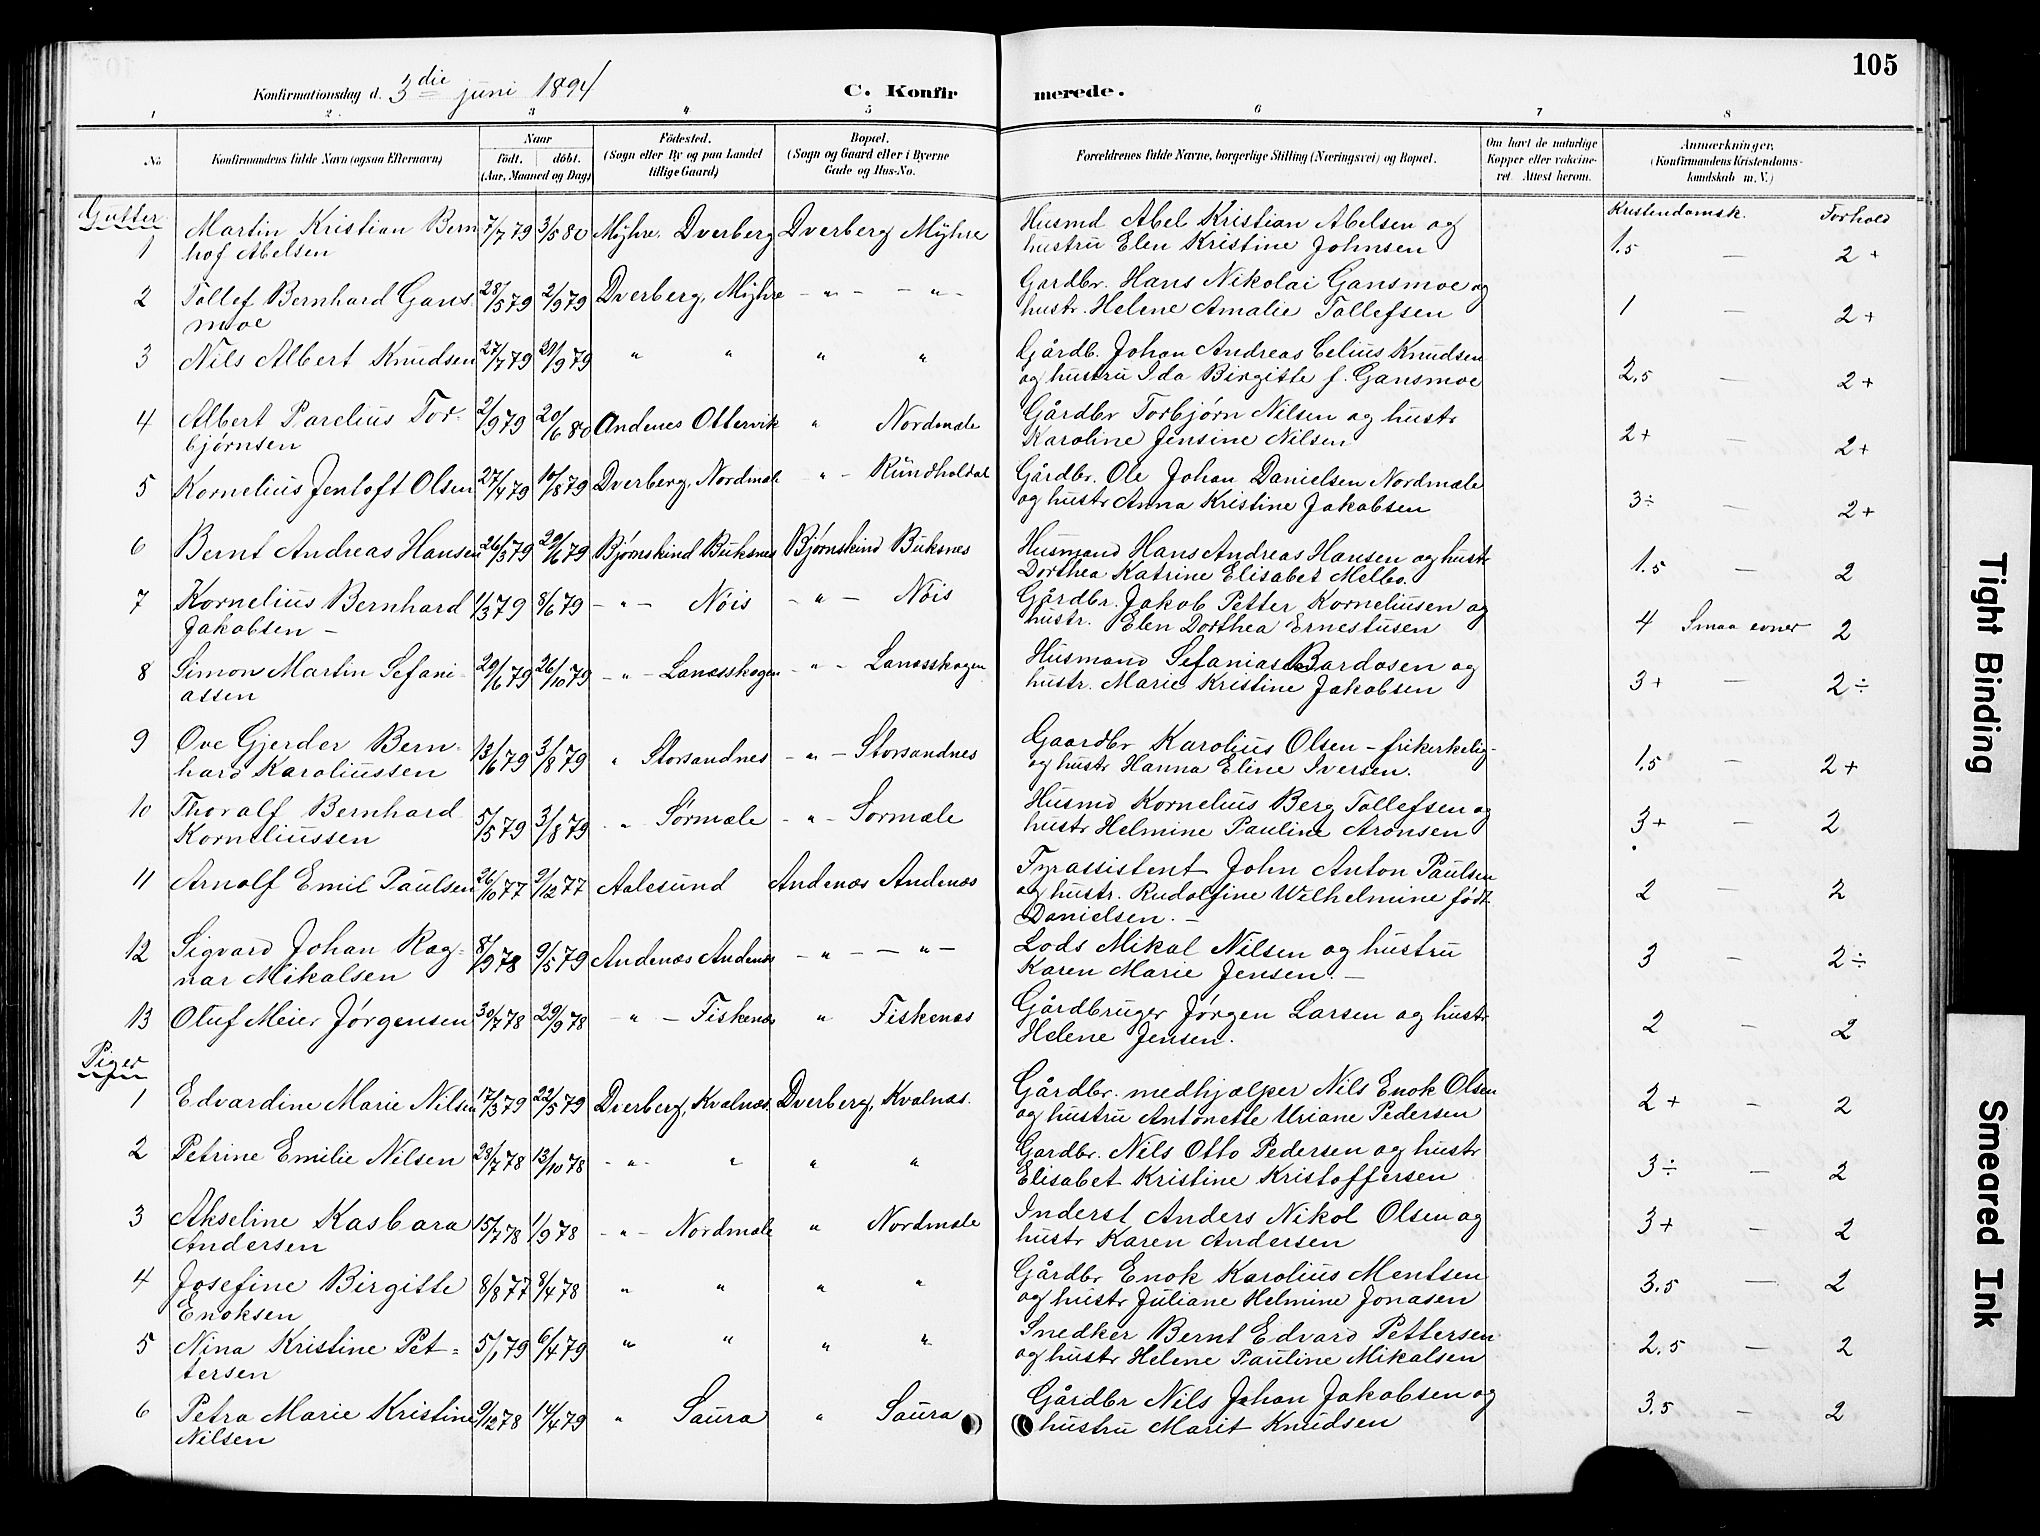 105
Konfirmationsdag d. 3die juni 1894 C. Konfirmerede.
1 2 3 4 5 6 7 8
No Konfirmandens fulde Navn (ogsaa Efternavn) Naar født. døbt. (Aar, Maaned og Dag) Fødested. (Sogn eller By og paa Landet tillige Gaard) Bopæl. (Sogn og Gaard eller i Byerne Gade og Hus-No. Forældrenes fulde Navne, borgerlige Stilling (Næringsvei) og Bopæl. Om havt de naturlige Kopper eller vakcineret. Attest herom. Anmærkninger. (Konfirmandens Kristendomskundskab m. V.)
Gutter Kristendomsk. Forhold
1 Martin Kristian Bern 7/7 79 3/5 80 Myhre. Dverberg Dverberg Myhre Husmd Abel Kristian Abelsen og
hof Abelsen hustru Elen Kristine Johnsen 1.5 — 2+
2 Tollef Bernhard Gans 28/5 79 2/9 79 Dverberg, Myhre — " — — " — Gardbr. Hans Nikolai Gansmoe og
moe hustr. Helene Amalie Tollefsen 1 — 2+
3 Nils Albert Knudsen 27/7 79 21/9 79 " " " " Gårdb. Johan Andreas Celius Knudsen
og hustru Ida Birgitte f. Gansmoe 2,5 — 2+
4 Albert Parelius Tor- 2/9 79 20/6 80 Andenes Ottervik " Nordmæle Gårdbr Torbjørn Nilsen og hustr
bjørnsen Karoline Jensine Nilsen 2+ — 2+
5 Kornelius Jentoft Olsen 27/4 79 10/8 79 Dverberg, Nordmæle — " — Rundholdal Gårdbr. Ole Johan Danielsen Nordmæle
og hustr Anna Kristine Jakobsen 3÷ — 2+
6 Bernt Andreas Hansen 26/3 79 29/6 79 Bjørnskind Buksnes Bjørnskind Buksnes Husmand Hans Andreas Hansen og hustr
Dorthea Katrine Elisabet Melbo. 1.5 — 2
7 Kornelius Bernhard 1/3 79 8/6 79 — " — Nöis — " — Nöis Gårdbr. Jakob Petter Korneliusen og
Jakobsen — hustr. Elen Dorthea Ernestusen 4 Smaa evner 2
8 Simon Martin Sefani- 29/6 79 26/10 79 — " — Lanesskogen — " — Lanesskogen Husmand Sefanias Bardosen og
assen hustr. Marie Kristine Jakobsen 3+ — 2÷
9 Ove Gjerder Bern- 13/6 79 3/8 79 " Storsandnes — " — Storsandnes Gaardbr Karolius Olsen — frikirkelig —
hard Karoliussen og hustr Hanna Eline Iversen. 1.5 — 2+
10 Thoralf Bernhard 5/5 79 3/8 79 — " Sørmæle — " — Sørmæle Husmd Kornelius Berg Tollefsen og
Korneliussen hustr Helmine Pauline Aronsen 3+ — 2
11 Arnolf Emil Paulsen 26/10 77 2/12 77 Aalesund Andenæs Andenæs Fyrassistent John Anton Paulsen
og hustr. Rudolfine Wilhelmine født 2 — 2
Danielsen. —
12 Sigvard Johan Rag- 8/9 78 9/5 79 Andenæs Andenæs — " — — " — Lods Mikal Nilsen og hustru
nar Mikalsen Karen Marie Jensen. — 3 — 2÷
13 Oluf Meier Jørgensen 30/7 78 29/9 78 — " — Fiskenæs " Fiskenæs Gårdbruger Jørgen Larsen og hustr
Helene Jensen. 2 — 2
Piger
1 Edvardine Marie Nilsen 17/3 79 22/5 79 Dverberg, Kvalnæs. Dverberg, Kvalnæs. Gårdbr. medhjælper Nils Enok Olsen
og hustru Antonette Uriane Pedersen 2+ — 2
2 Petrine Emilie Nilsen 28/7 78 13/10 78 — " — " " " Gardbr. Nils Otto Pedersen og hustr
Elisabet Kristine Kristoffersen 3÷ — 2
3 Akseline Kasbara 15/7 78 1/9 78 — " — Nordmæle " Nordmæle Inderst Anders Nikol Olsen og
Andersen hustr Karen Andersen 3+ — 2
4 Josefine Birgitte 8/8 77 8/4 78 " " " " Gårdbr Enok Karolius Mentsen
Enoksen og hustr Juliane Helmine Jonasen 3.5 — 2
5 Nina Kristine Pet- 5/1 79 6/4 79 " " " " Snedker Bernt Edvard Pettersen
tersen og hustr Helene Pauline Mikalsen 2.5 — 2
6 Petra Marie Kristine 9/12 78 14/4 79 " Saura " Saura Gårdbr Nils Johan Jakobsen og
Nilsen hustru Marit Knudsen 3.5 — 2
Tight Binding
Smeared Ink